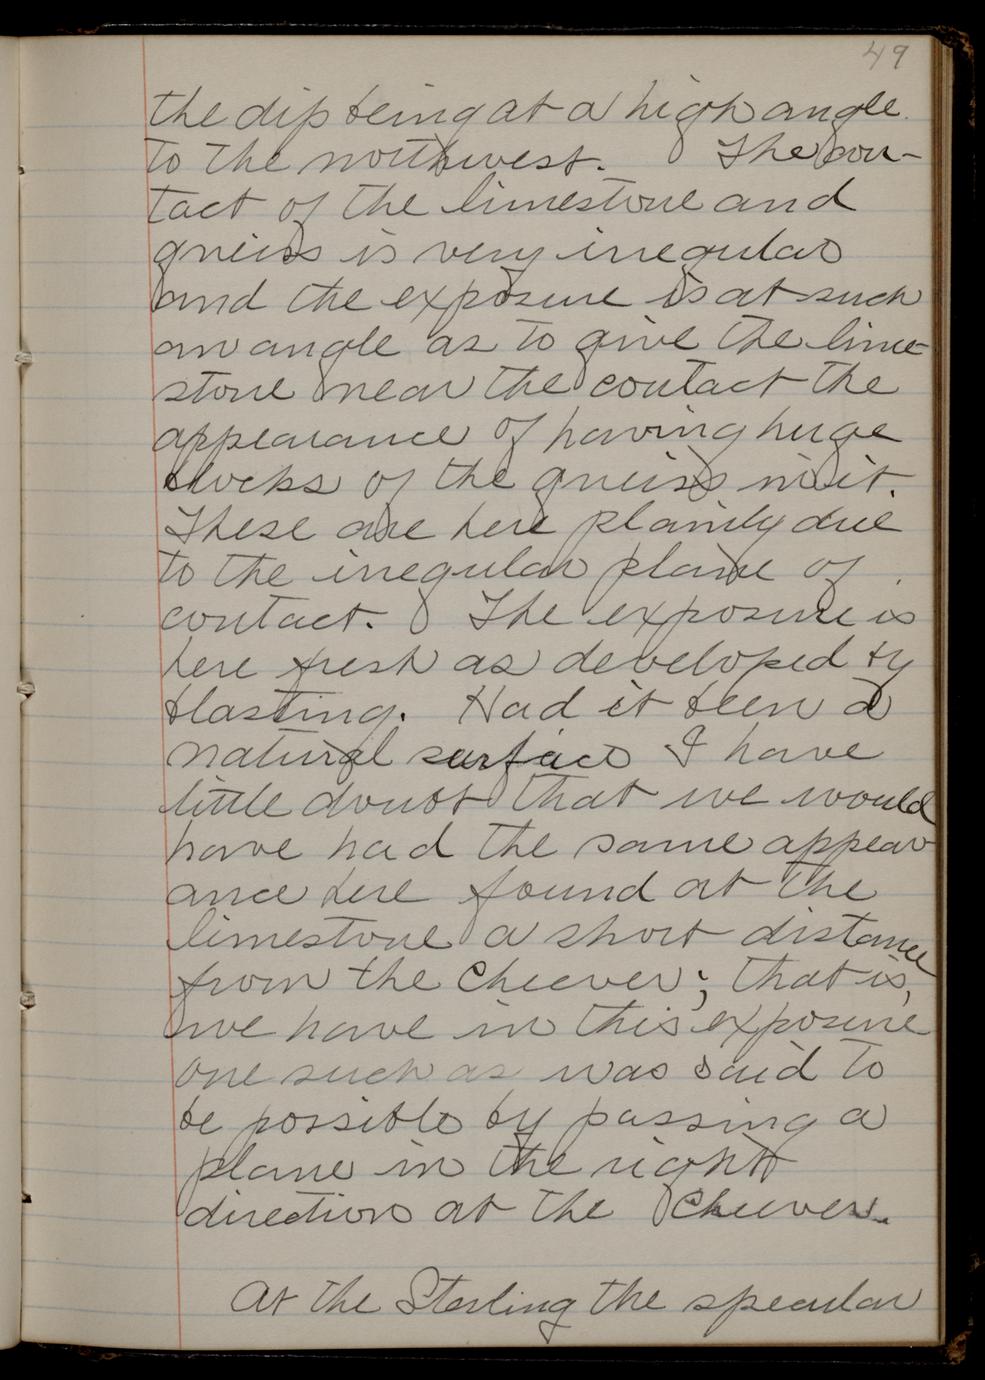 49
the dip being at a high angle
to the northwest. The con-
tact of the limestone and
gneiss is very irregular
and the exposure is at such
an angle as to give the lime-
stone near the contact the
appearance of having huge
blocks of the gneiss in it.
These are here plainly due
to the irregular plane of
contact. The exposure is
here fresh as developed by
blasting. Had it been a
natural surface I have
little doubt that we would
have had the same appear
ance here found at the
limestone a short distance
from the Cheever; that is,
we have in this exposure
one such as was said to
be possible by passing a
plane in the right
direction at the Cheever.
At the Sterling the specular